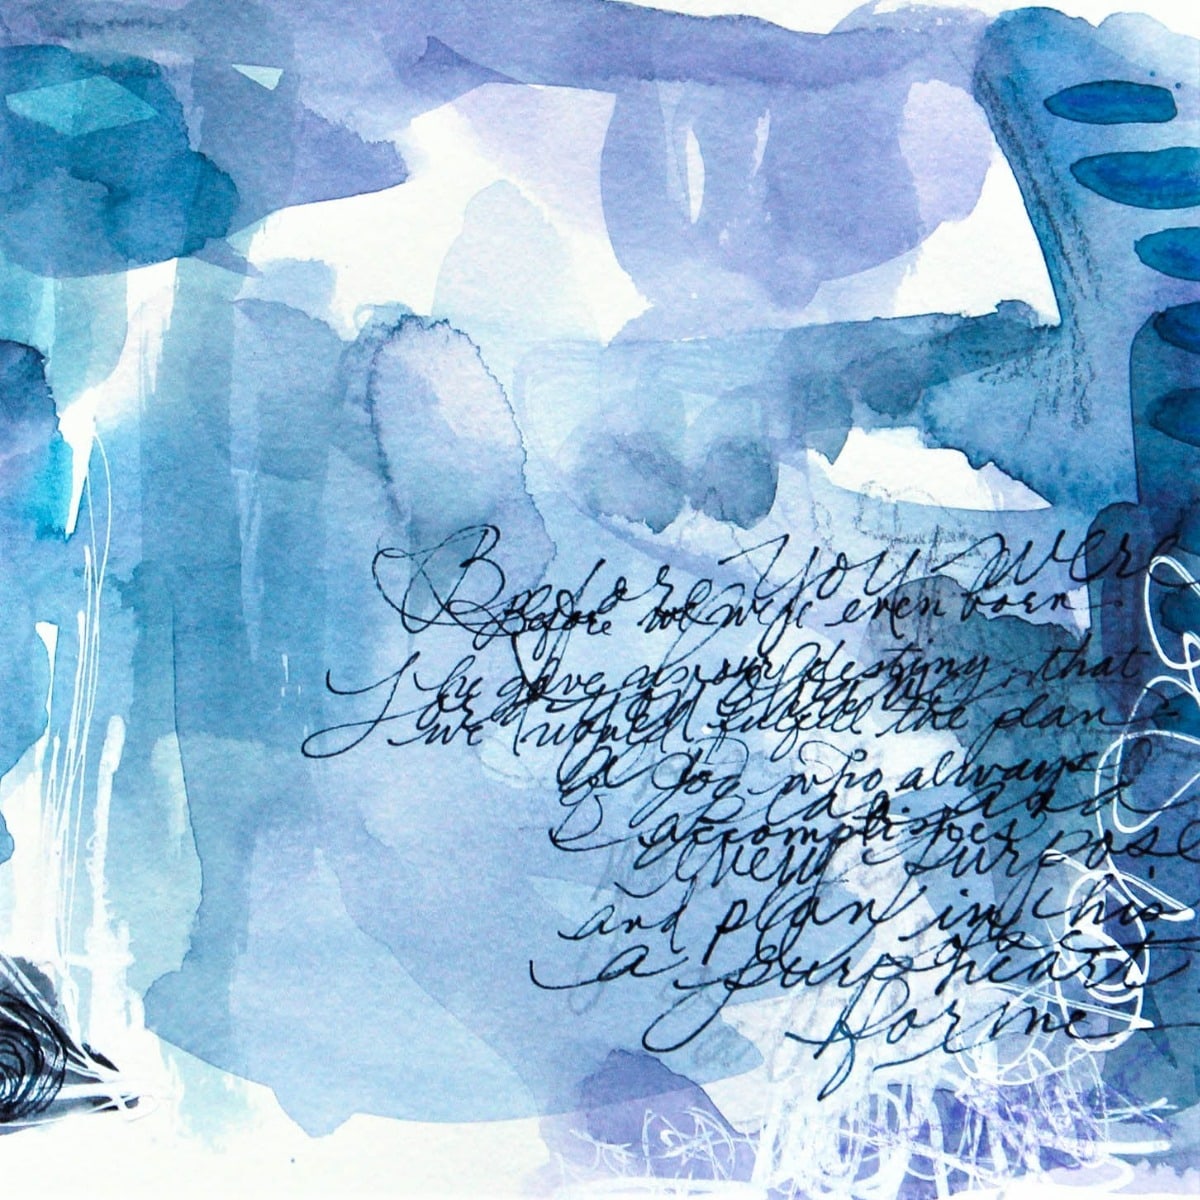 Before you were
Before we were even born
he gave us our destiny that
we would fulfill the plan
of God who always
accomplishes
every purpose
and plan in his
a purp heart
for me